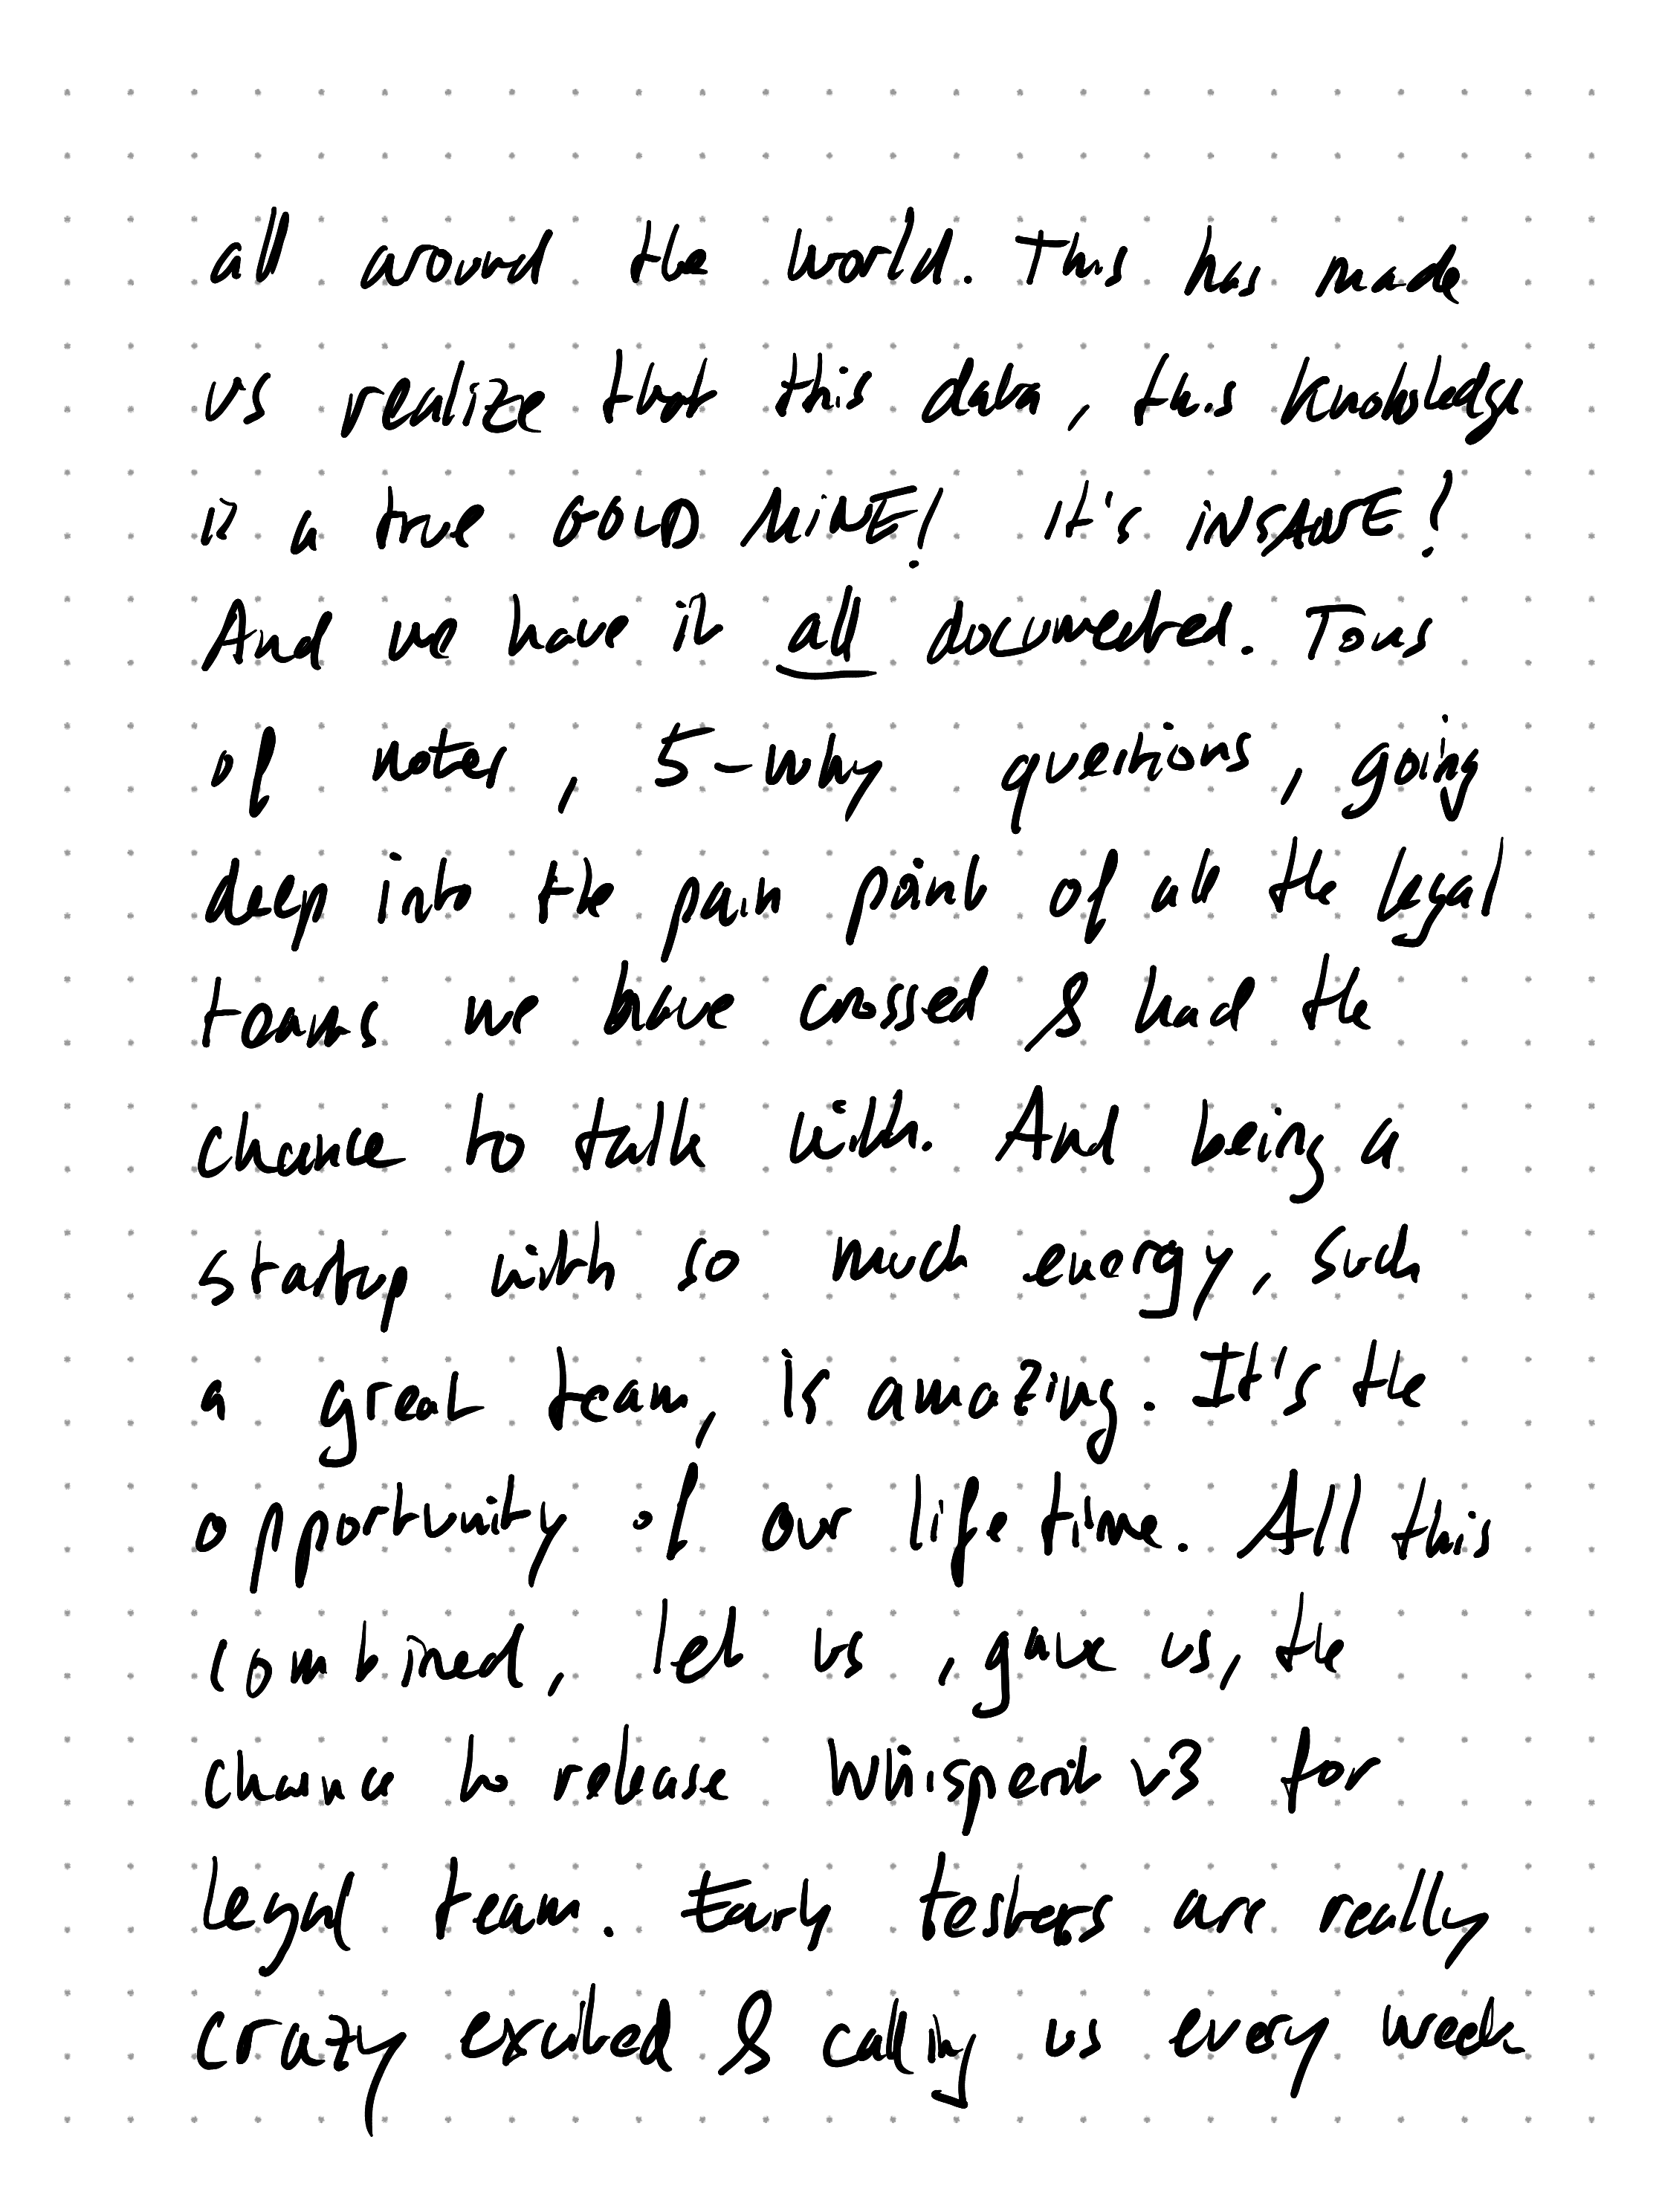 all around the world. This has made
us realize that this data, this knowledge
is a true GOLD MINE! It's INSANE!
And we have it all documented. Tons
of notes, 5-why questions, going
deep into the pain point of all the legal
teams we have crossed & had the
chance to talk with. And being a
startup with so much energy, such
a great team, is amazing. It's the
opportunity of our life time. All this
combined, let us, gave us, the
chance to release Whisperit v3 for
legal team. Early testers are really
crazy excited & calling us every week